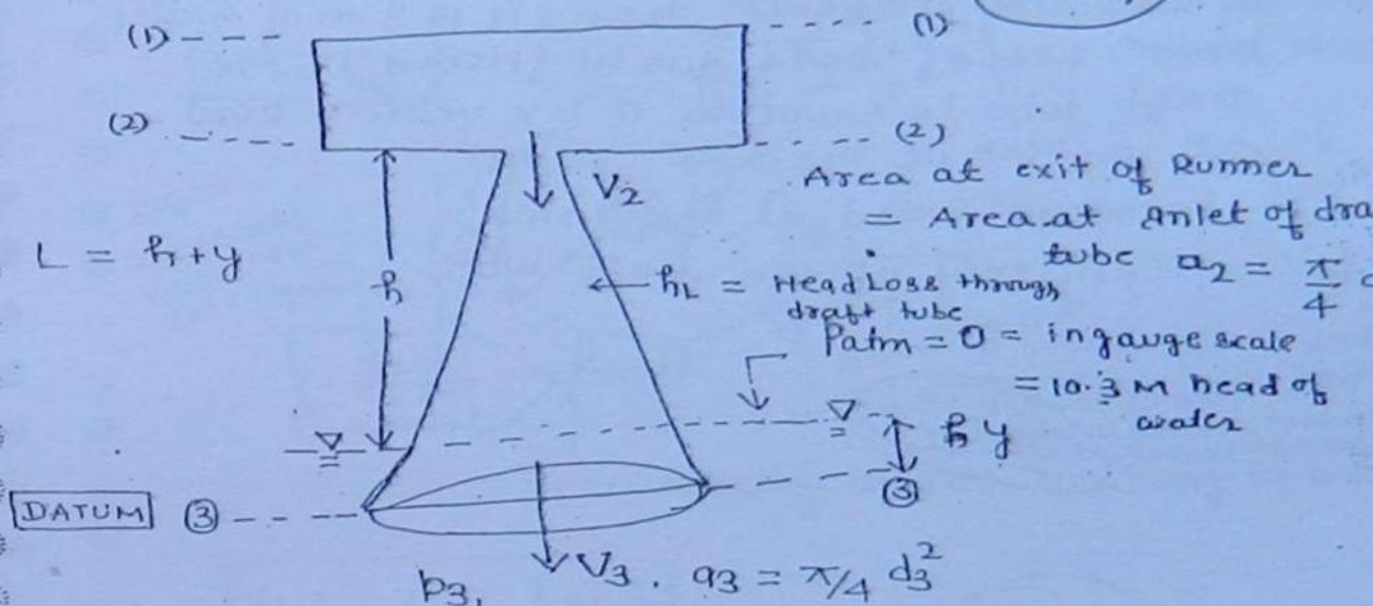 (1) (1)
(2) (2)
V2
Area at exit of Runner
= Area at Inlet of
tube a2 = π/4
L = h+y
h
hL = Head Loss through
draft tube
Patm = 0 = in gauge scale
= 10.3 M head of
water
y
DATUM ③ ③
p3, V3, a3 = π/4 d3²